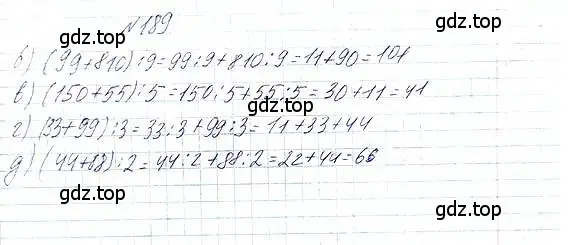 №189
б) (99+810):9=99:9+810:9=11+90=101
в) (150+55):5=150:5+55:5=30+11=41
г) (33+99):3=33:3+99:3=11+33+44
д) (44+88):2=44:2+88:2=22+44=66
gdz.top
gdz.top
gdz.top
gdz.top